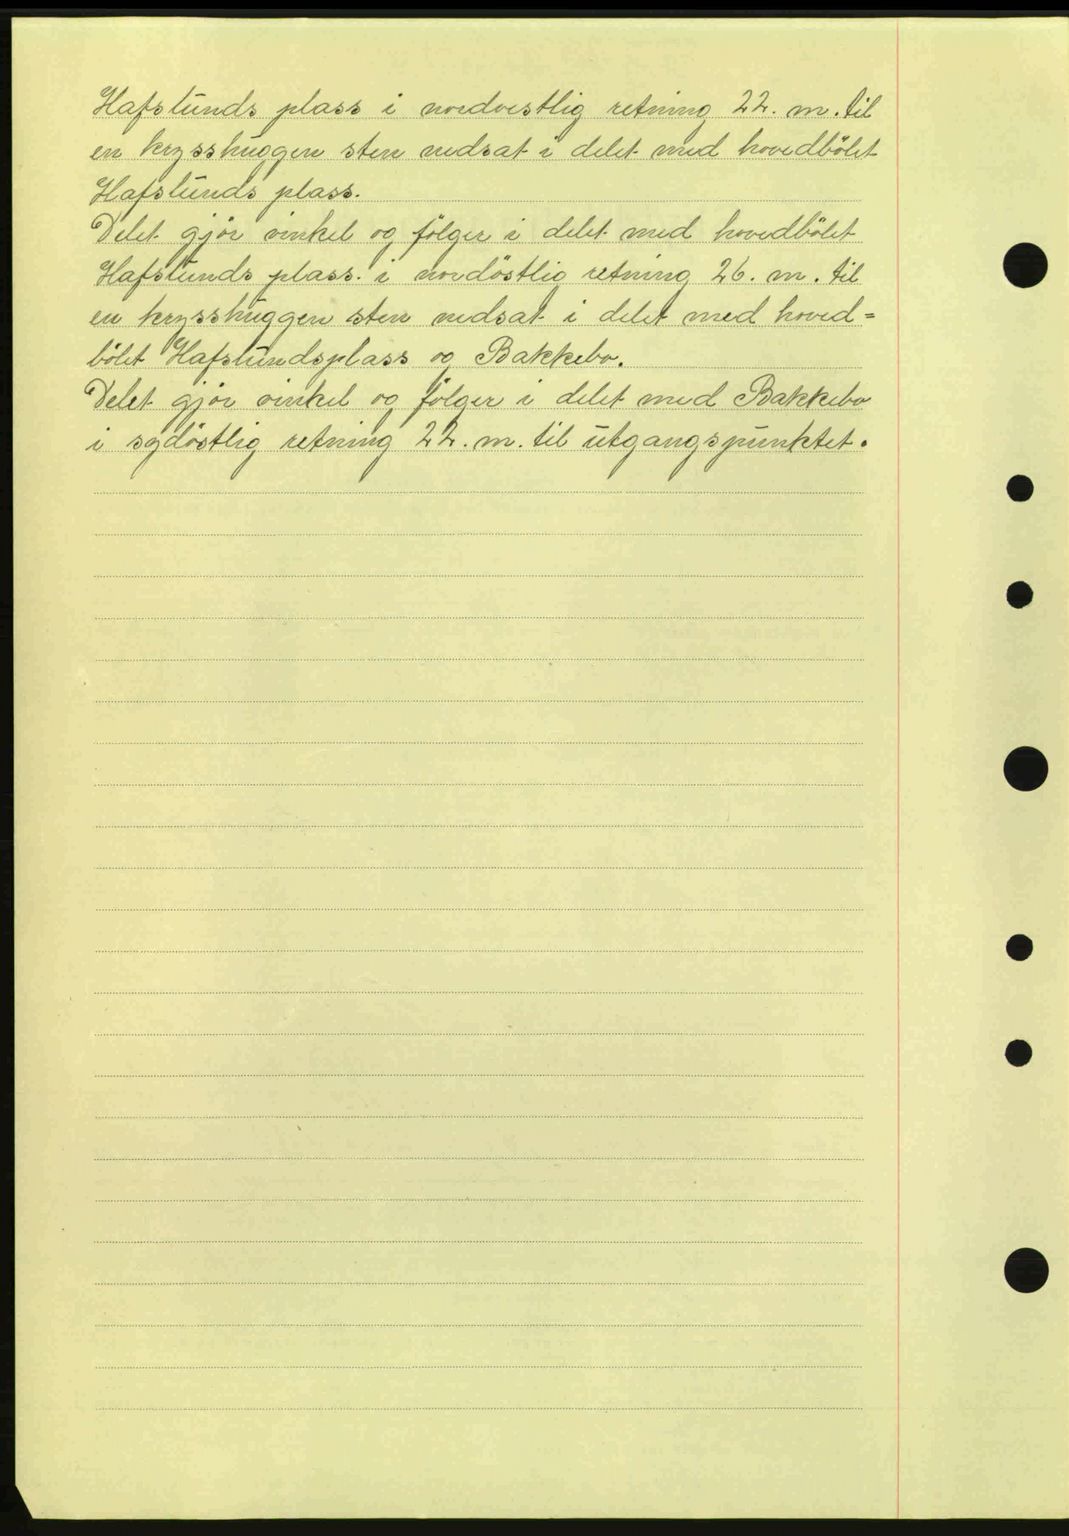 Hafslunds plass i nordvestlig retning 22. m. til
en krysshuggen sten nedsat i delet med hovedbölet
Hafslunds plass.
Delet gjör vinkel og fölger i delet med hovedbölet
Hafslunds plass. i nordöstlig retning 26. m. til
en krysshuggen sten nedsat i delet med hoved=
bölet Hafslundsplass og Bakkebo.
Delet gjör vinkel og fölger i delet med Bakkebo
i sydöstlig retning 22. m. til utgangspunktet.